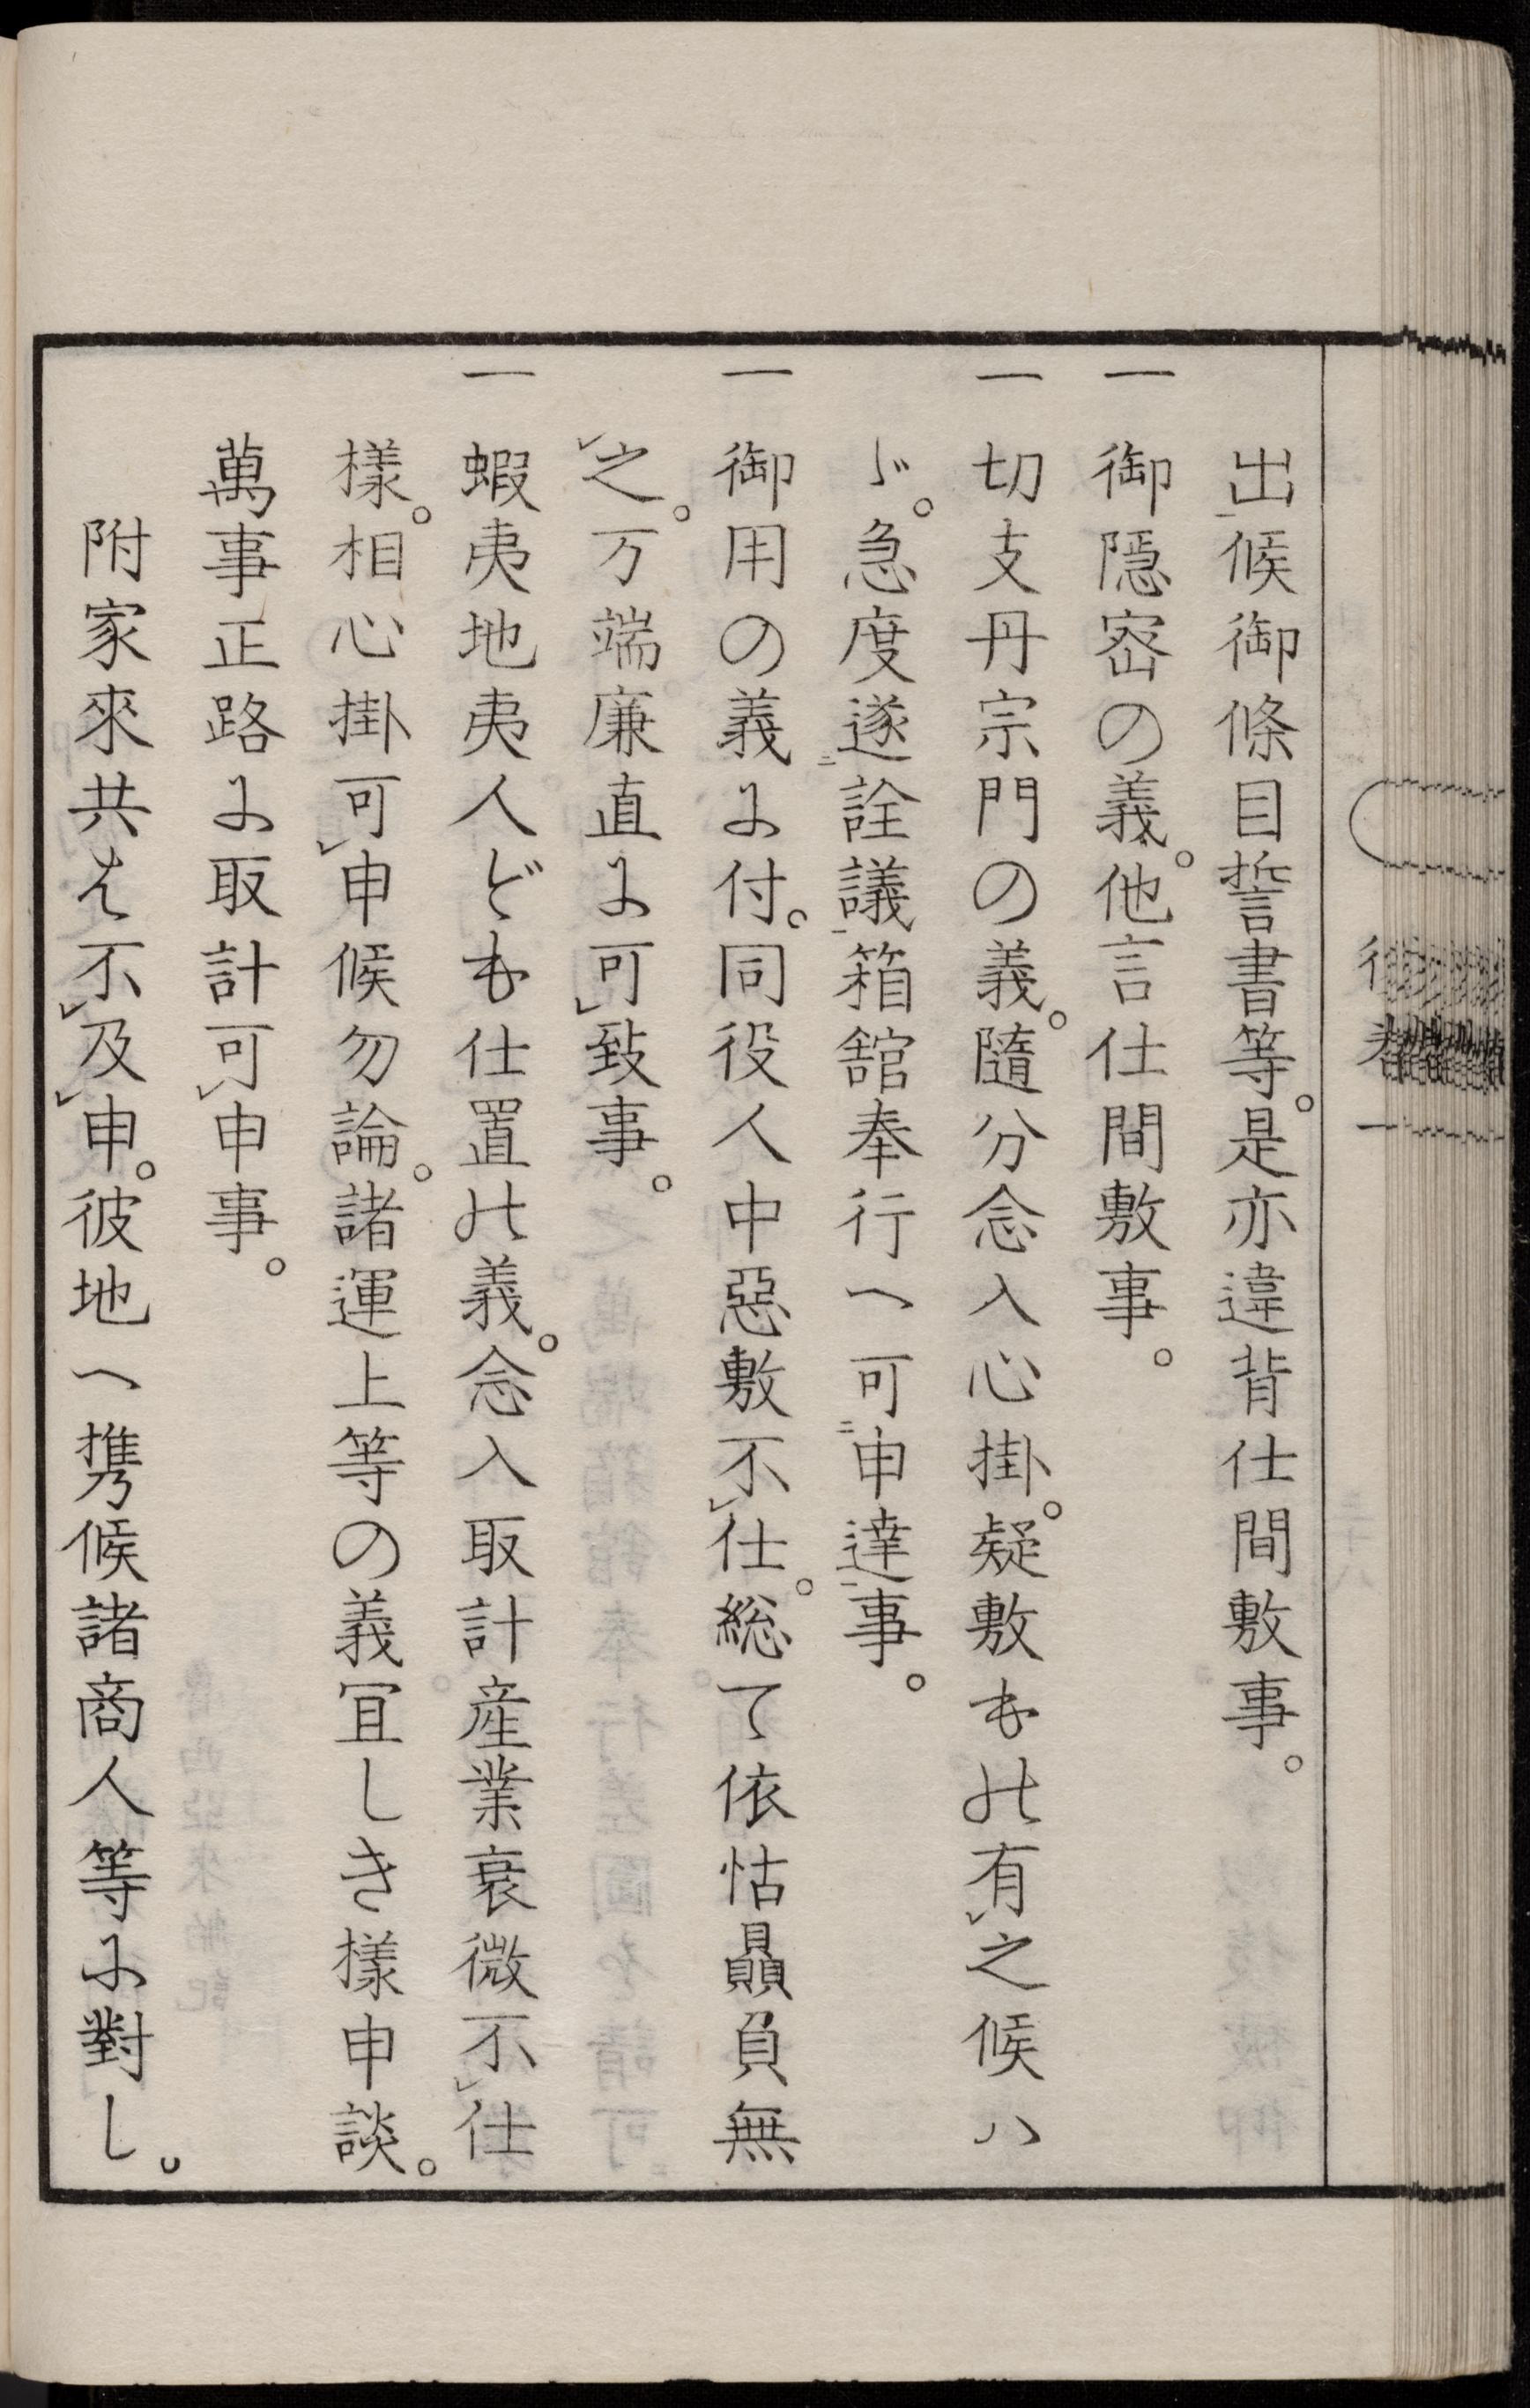 出候御條目誓書等。是亦違背仕間敷事。
一 御隱密の義。他言仕間敷事。
一 切支丹宗門の義。隨分念入心掛。疑敷もの有㆑之候ハ
ゞ。急度遂㆓詮議㆒箱舘奉行へ可㆓申達㆒事。
一 御用の義に付。同役人中惡敷不㆑仕。総て依怙贔負無
㆑之。万端廉直に可㆑致事。
一 蝦夷地夷人ども仕置の義。念入取計産業衰微不㆑仕
樣。相心掛可㆑申候勿論。諸運上等の義冝しき樣申談。
萬事正路に取計可㆑申事。
附家來共は不㆑及㆑申。彼地へ携候諸商人等に對し。